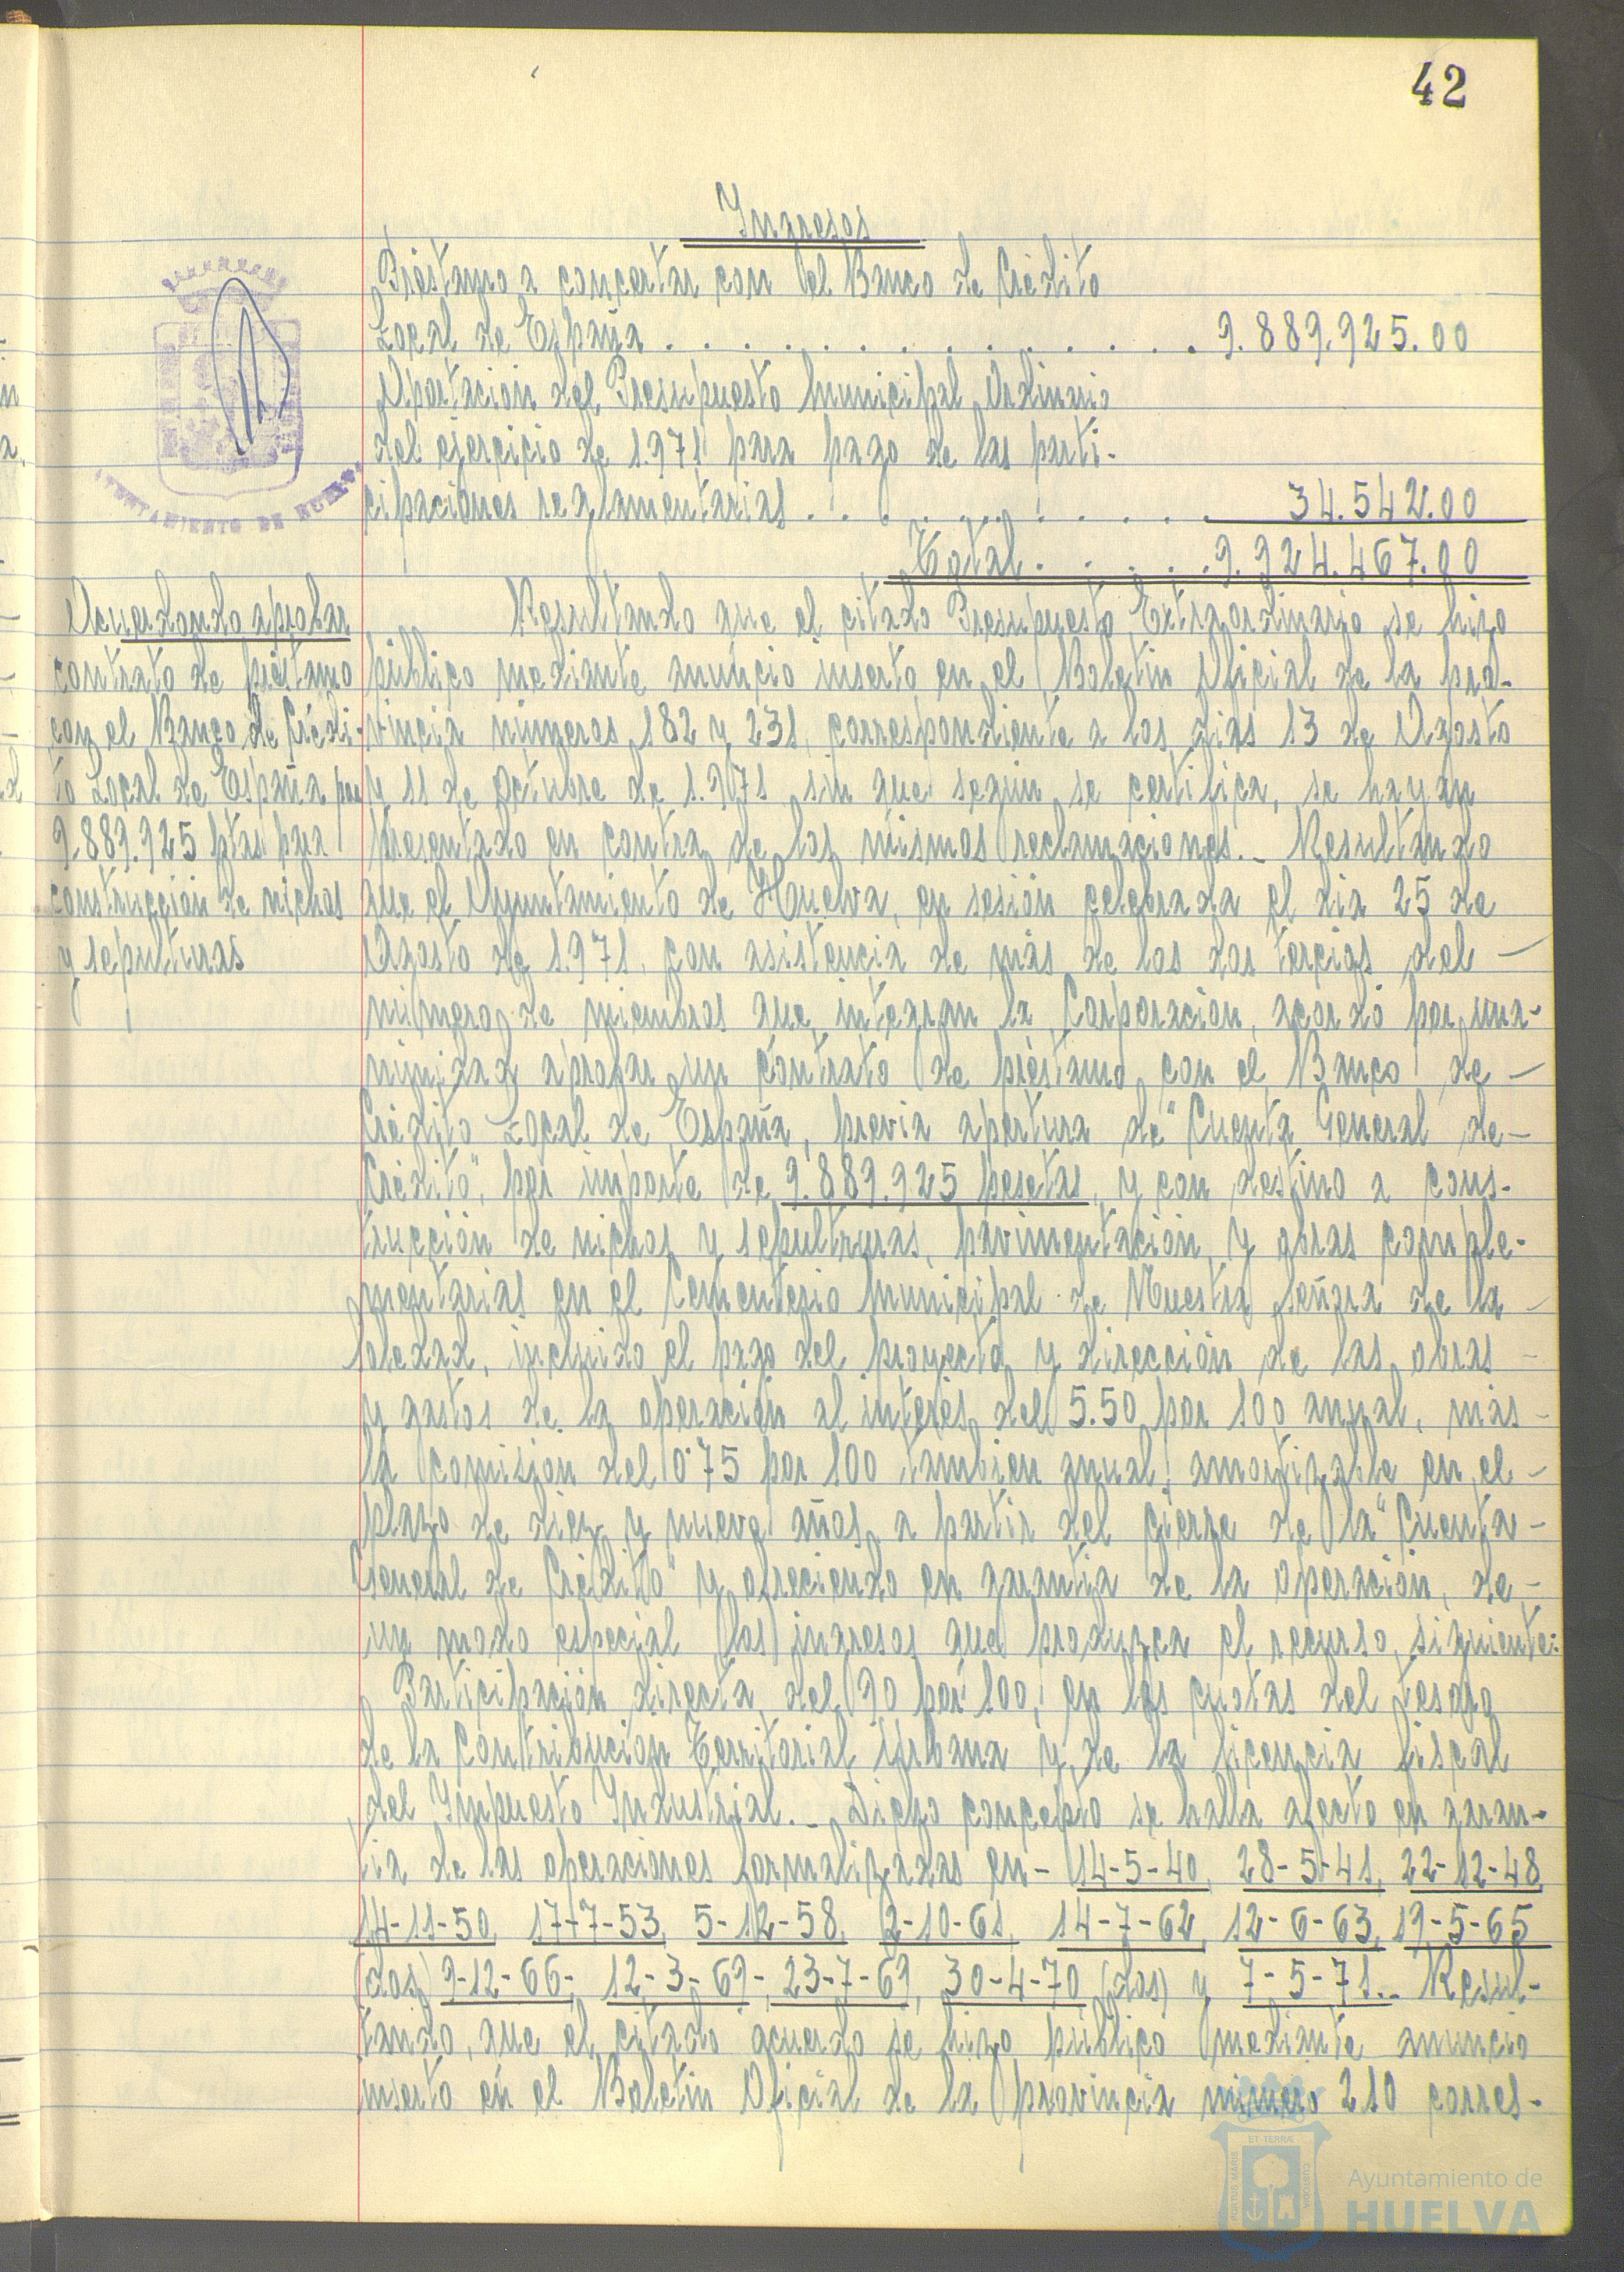 42
Ingresos
Préstamo a concertar con el Banco de Crédito
Local de España . . . . . . . . . . . . . . 9.889.925.00
Aportación del Presupuesto Municipal Ordinario
del ejercicio de 1.971 para pago de las parti-
cipaciones reglamentarias . . . . . . . . . . 34.542.00
Total . . . . . 9.924.467.00
AYUNTAMIENTO DE HUELVA
Acuerdondo aprobar
contrato de préstamo
con el Banco de Crédi-
to Local de España por
9.889.925 ptas para
construcción de nichos
y sepulturas
Resultando que el citado Presupuesto Extraordinario se hizo
público mediante anuncio inserto en el Boletín Oficial de la pro-
vincia números 182 y 231, correspondiente a los días 13 de Agosto
y 11 de Octubre de 1.971 sin que según se certifica, se hayan
presentado en contra de los mismos reclamaciones.- Resultando
que el Ayuntamiento de Huelva, en sesión celebrada el día 25 de
Agosto de 1.971, con asistencia de más de los dos tercios del -
número de miembros que integran la Corporación, acordó por una-
nimidad aprobar un contrato de préstamo con el Banco de -
Crédito Local de España, previa apertura de "Cuenta General de -
Crédito", por importe de 9.889.925 pesetas, y con destino a cons-
trucción de nichos y sepulturas, pavimentación y obras comple-
mentarias en el Cementerio Municipal de Nuestra Señora de la -
Soledad, incluido el pago del proyecto y dirección de las obras -
y gastos de la operación al interés del 5.50 por 100 anual, más -
la comisión del 0'75 por 100 también anual, amortizable en el -
plazo de diez y nueve años a partir del cierre de la "Cuenta -
General de Crédito" y ofreciendo en garantía de la operación, de -
un modo especial los ingresos que produzca el recurso siguiente:
Participación directa del 90 por 100, en las cuotas del tesoro
de la Contribución Territorial Urbana y de la licencia fiscal
del Impuesto Industrial.- Dicho concepto se halla afecto en garan-
tía de las operaciones formalizadas en - 14-5-40, 28-5-41, 22-12-48,
14-11-50, 17-7-53, 5-12-58, 2-10-61, 14-7-62, 12-6-63, 19-5-65
(dos) 9-12-66-, 12-3-69-, 23-7-69, 30-4-70 (dos) y 7-5-71.- Resul-
tando, que el citado acuerdo se hizo público mediante anuncio
inserto en el Boletín Oficial de la provincia número 210 corres-
PORTUS MARIS ET TERRAE CUSTODIA
Ayuntamiento de
HUELVA